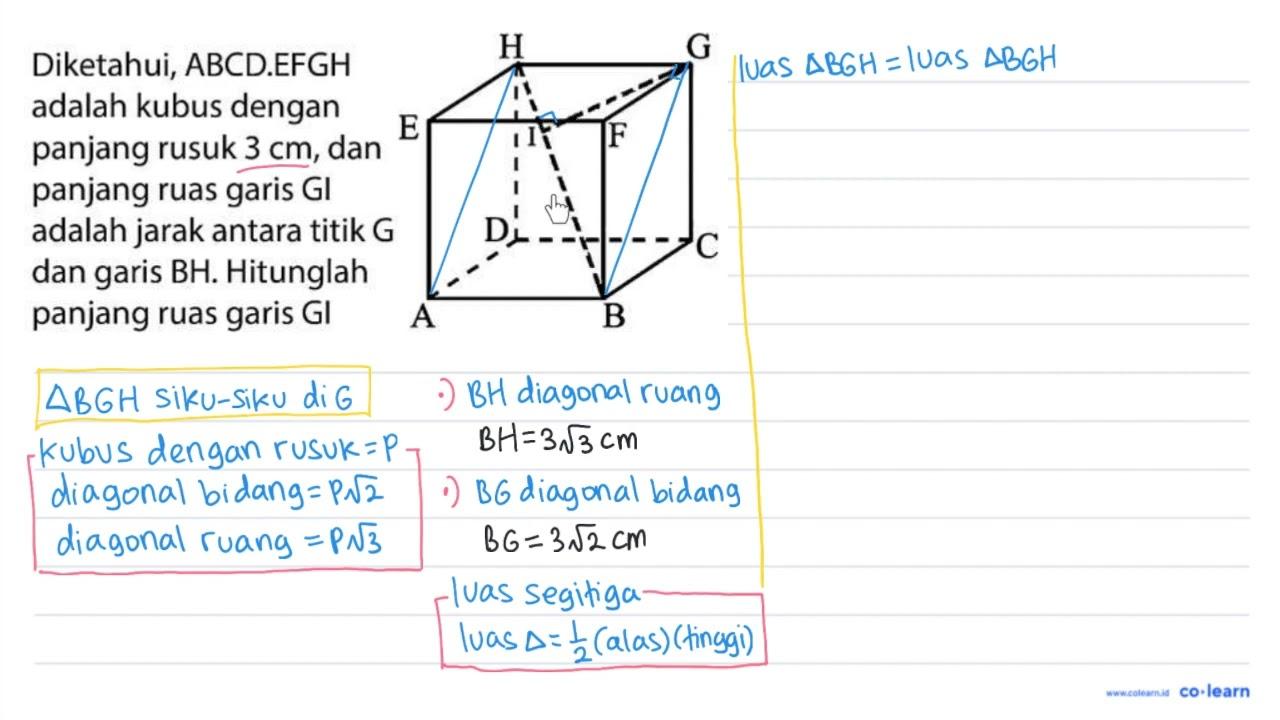 Diketahui, ABCD.EFGH
adalah kubus dengan
panjang rusuk 3 cm, dan
panjang ruas garis GI
adalah jarak antara titik G
dan garis BH. Hitunglah
panjang ruas garis GI
H
G
E
I
F
D
C
A
B
luas ΔBGH = luas ΔBGH
ΔBGH siku-siku di G
kubus dengan rusuk = p
diagonal bidang = p√2
diagonal ruang = p√3
•) BH diagonal ruang
BH = 3√3 cm
•) BG diagonal bidang
BG = 3√2 cm
luas segitiga
luas Δ = 1/2 (alas)(tinggi)
www.colearn.id co·learn